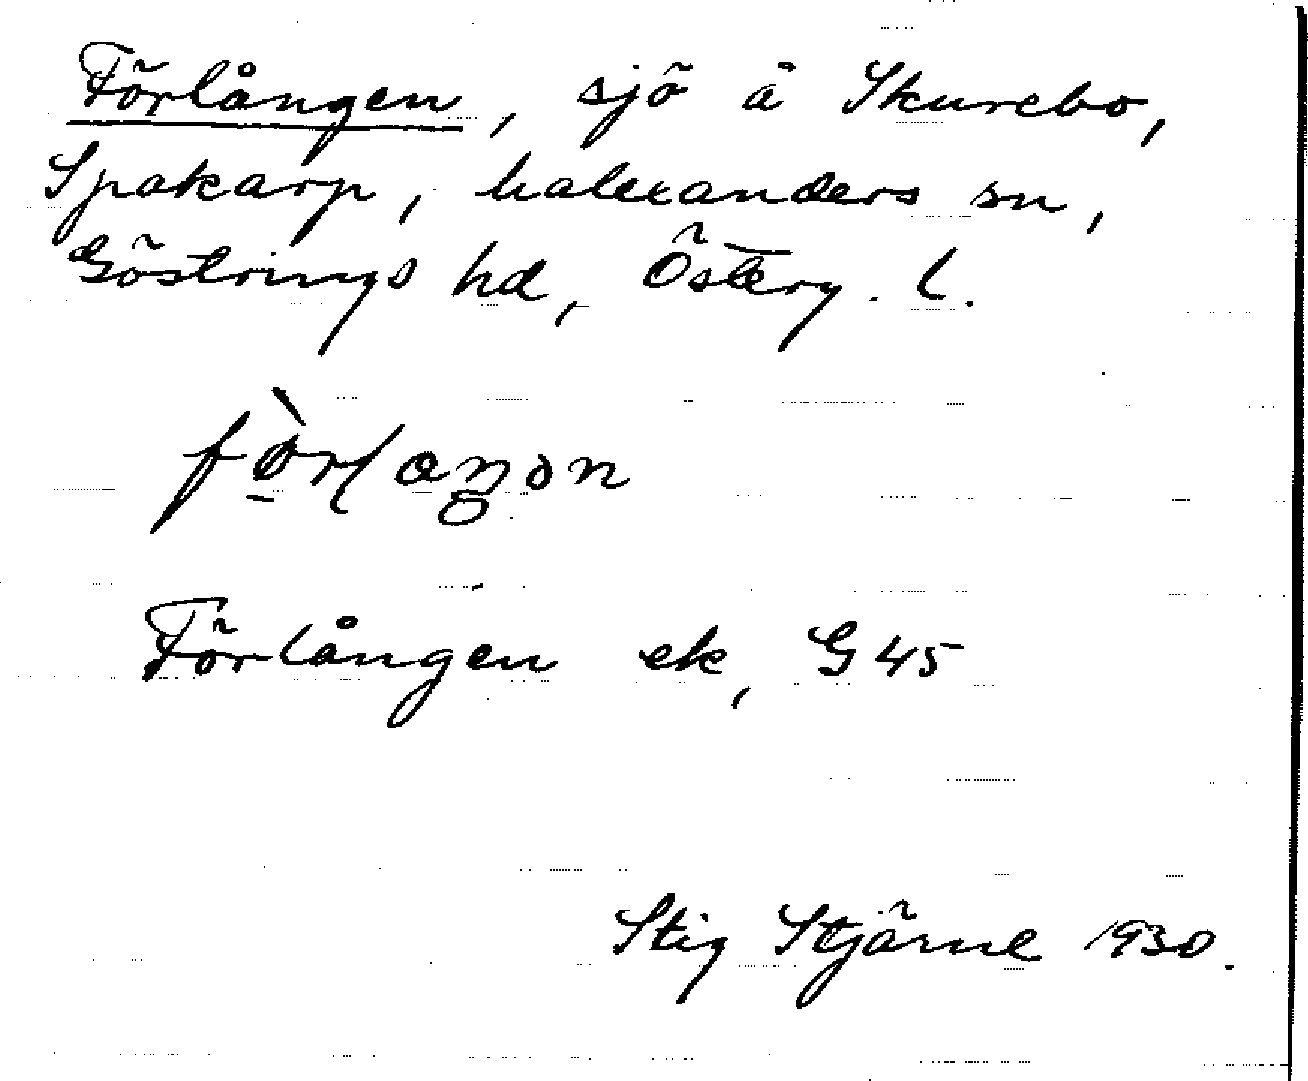 Förlången, sjö å Skurebo,
Spakarp, Malexanders sn,
Göstrings hd, Österg. l.
Förlången ek, G 45
Stig Stjärne 1930.